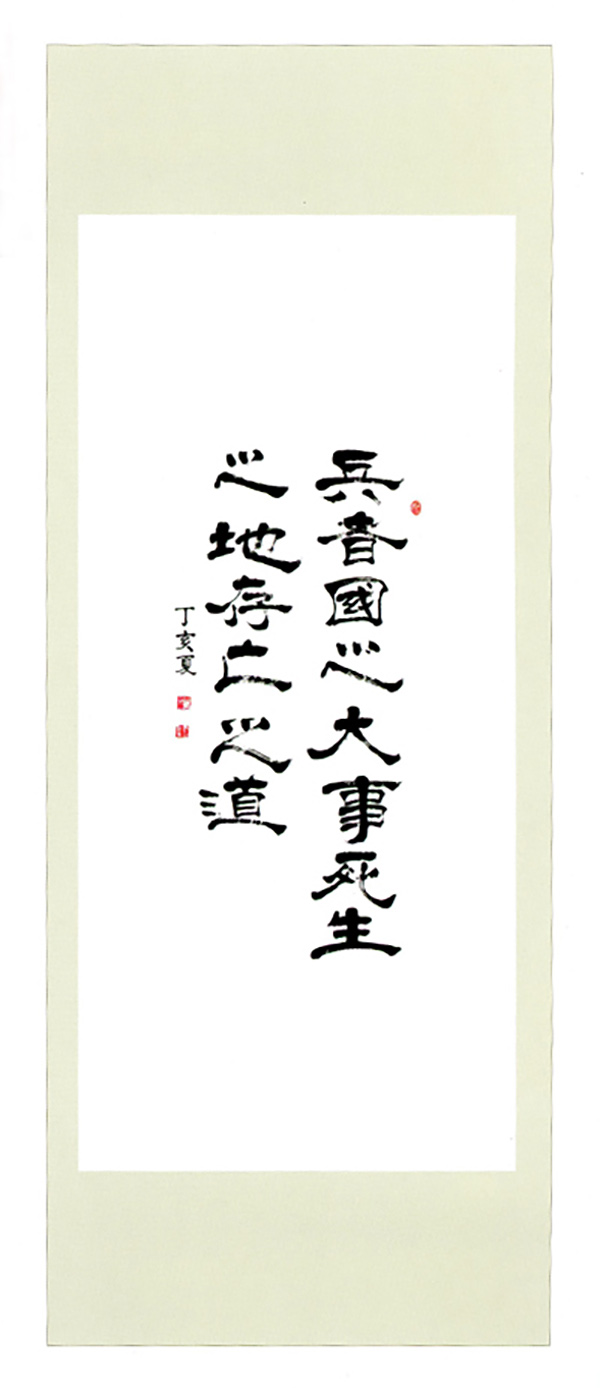 兵者國之大事死生
之地存亡之道
丁亥夏